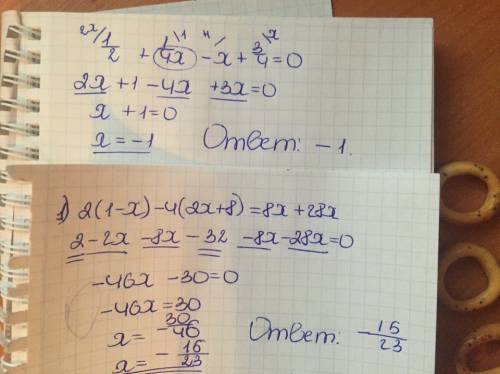 2x/ 1/2 + 1/4x \1 - 4/ x + 3/4 \x = 0
2x + 1 - 4x + 3x = 0
x + 1 = 0
x = -1 Ответ: -1.
1) 2(1-x) - 4(2x+8) = 8x + 28x
2 - 2x - 8x - 32 - 8x - 28x = 0
-46x - 30 = 0
-46x = 30
x = - 30/46
x = - 15/23 Ответ: - 15/23